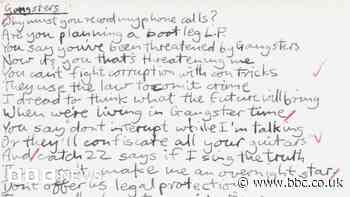 Gangsters
Why must you record my phone calls?
Are you planning a bootleg L.P.
You say you've been threatened by Gangsters
Now it's you that's threatening me
You cant fight corruption with con tricks
They use the law to comit crime
I dread to think what the future will bring
When we're living in Gangster time
You say dont interupt while I'm talking
Or they'll confiscate all your guitars
And catch 22 says if I sing the truth
make me an overnight star
Dont offer us legal protection
abc
www.bbc.co.uk